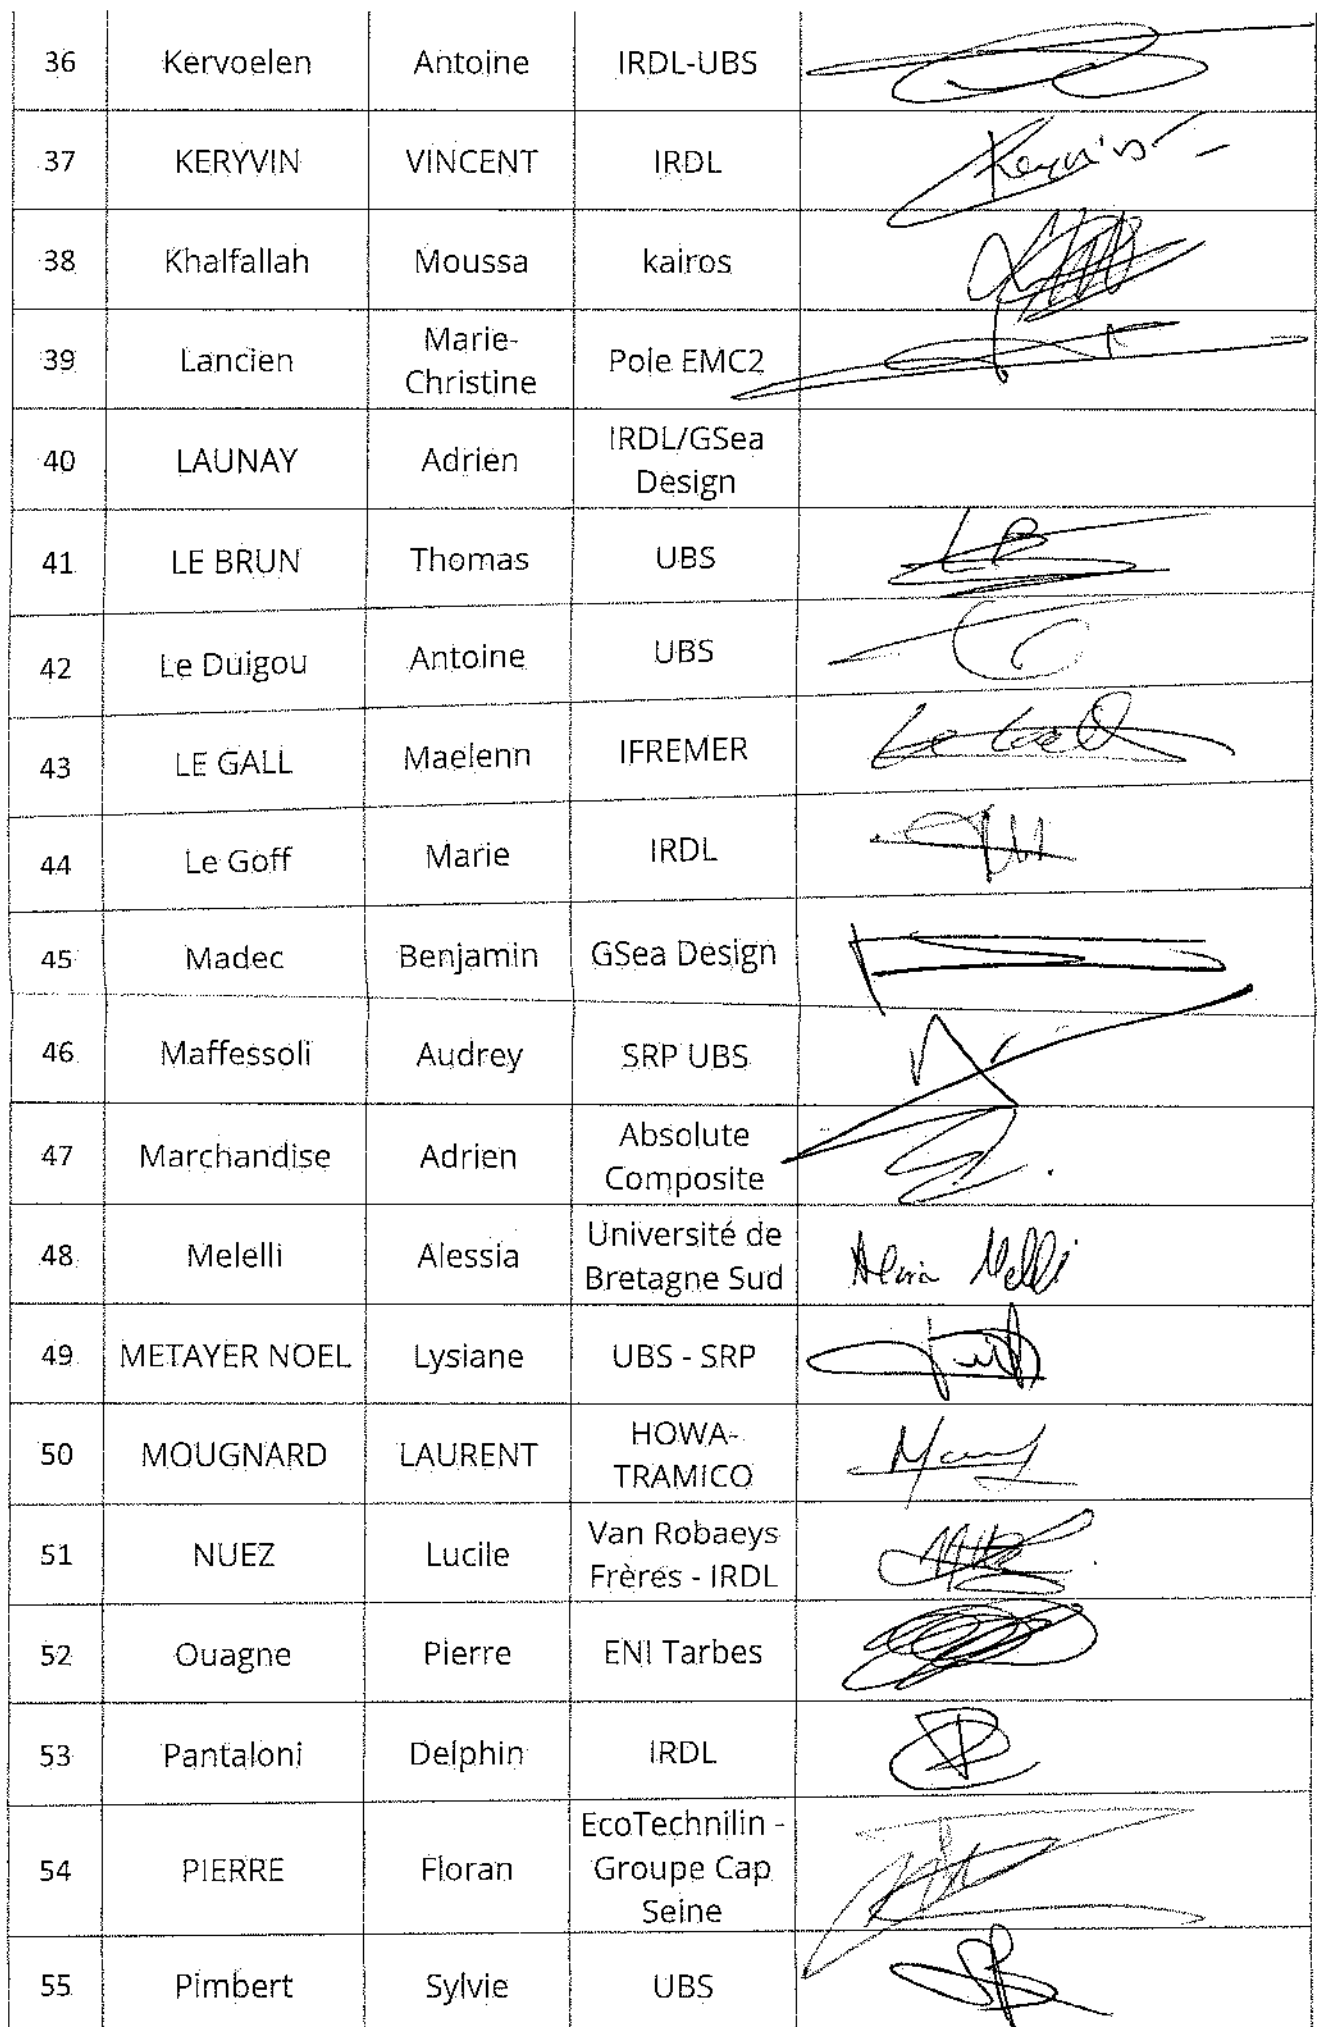 36 Kervoelen Antoine IRDL-UBS
37 KERYVIN VINCENT IRDL
38 Khalfallah Moussa kairos
39 Lancien Marie-
Christine Pole EMC2
40 LAUNAY Adrien IRDL/GSea
Design
41 LE BRUN Thomas UBS
LB
42 Le Duigou Antoine UBS
43 LE GALL Maelenn IFREMER
Le Gall
44 Le Goff Marie IRDL
45 Madec Benjamin GSea Design
46 Maffessoli Audrey SRP UBS
47 Marchandise Adrien Absolute
Composite
48 Melelli Alessia Université de
Bretagne Sud
49 METAYER NOEL Lysiane UBS - SRP
50 MOUGNARD LAURENT HOWA-
TRAMICO
51 NUEZ Lucile Van Robaeys
Frères - IRDL
52 Ouagne Pierre ENI Tarbes
53 Pantaloni Delphin IRDL
54 PIERRE Floran EcoTechnilin -
Groupe Cap
Seine
55 Pimbert Sylvie UBS